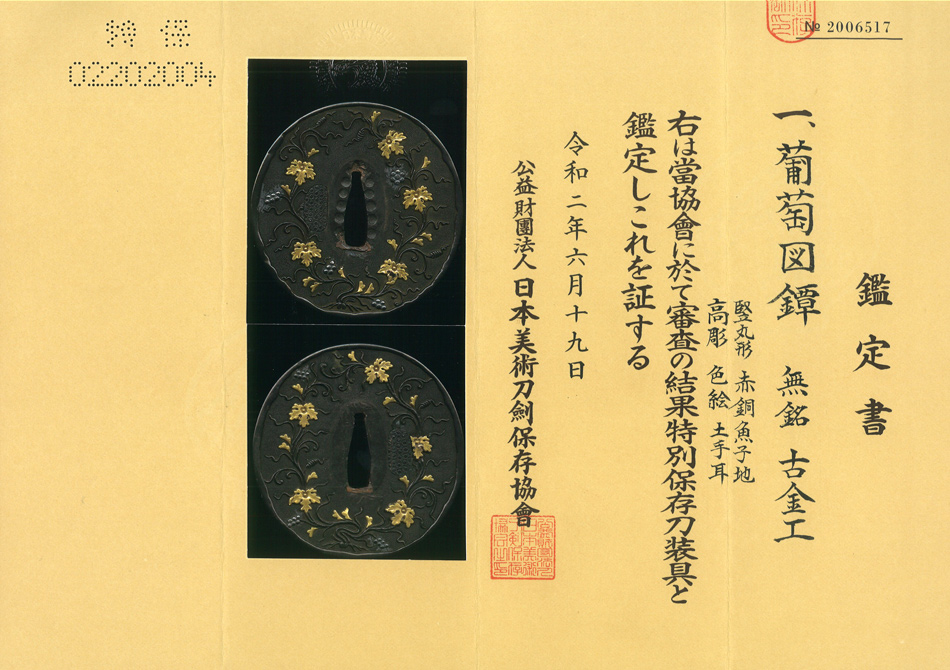 № 2006517
特保
02202004
鑑定書
一、葡萄図鐔 無銘 古金工
竪丸形 赤銅魚子地
高彫 色絵 土手耳
右は當協會に於て審査の結果特別保存刀装具と
鑑定しこれを証する
令和二年六月十九日
公益財團法人 日本美術刀劍保存協會